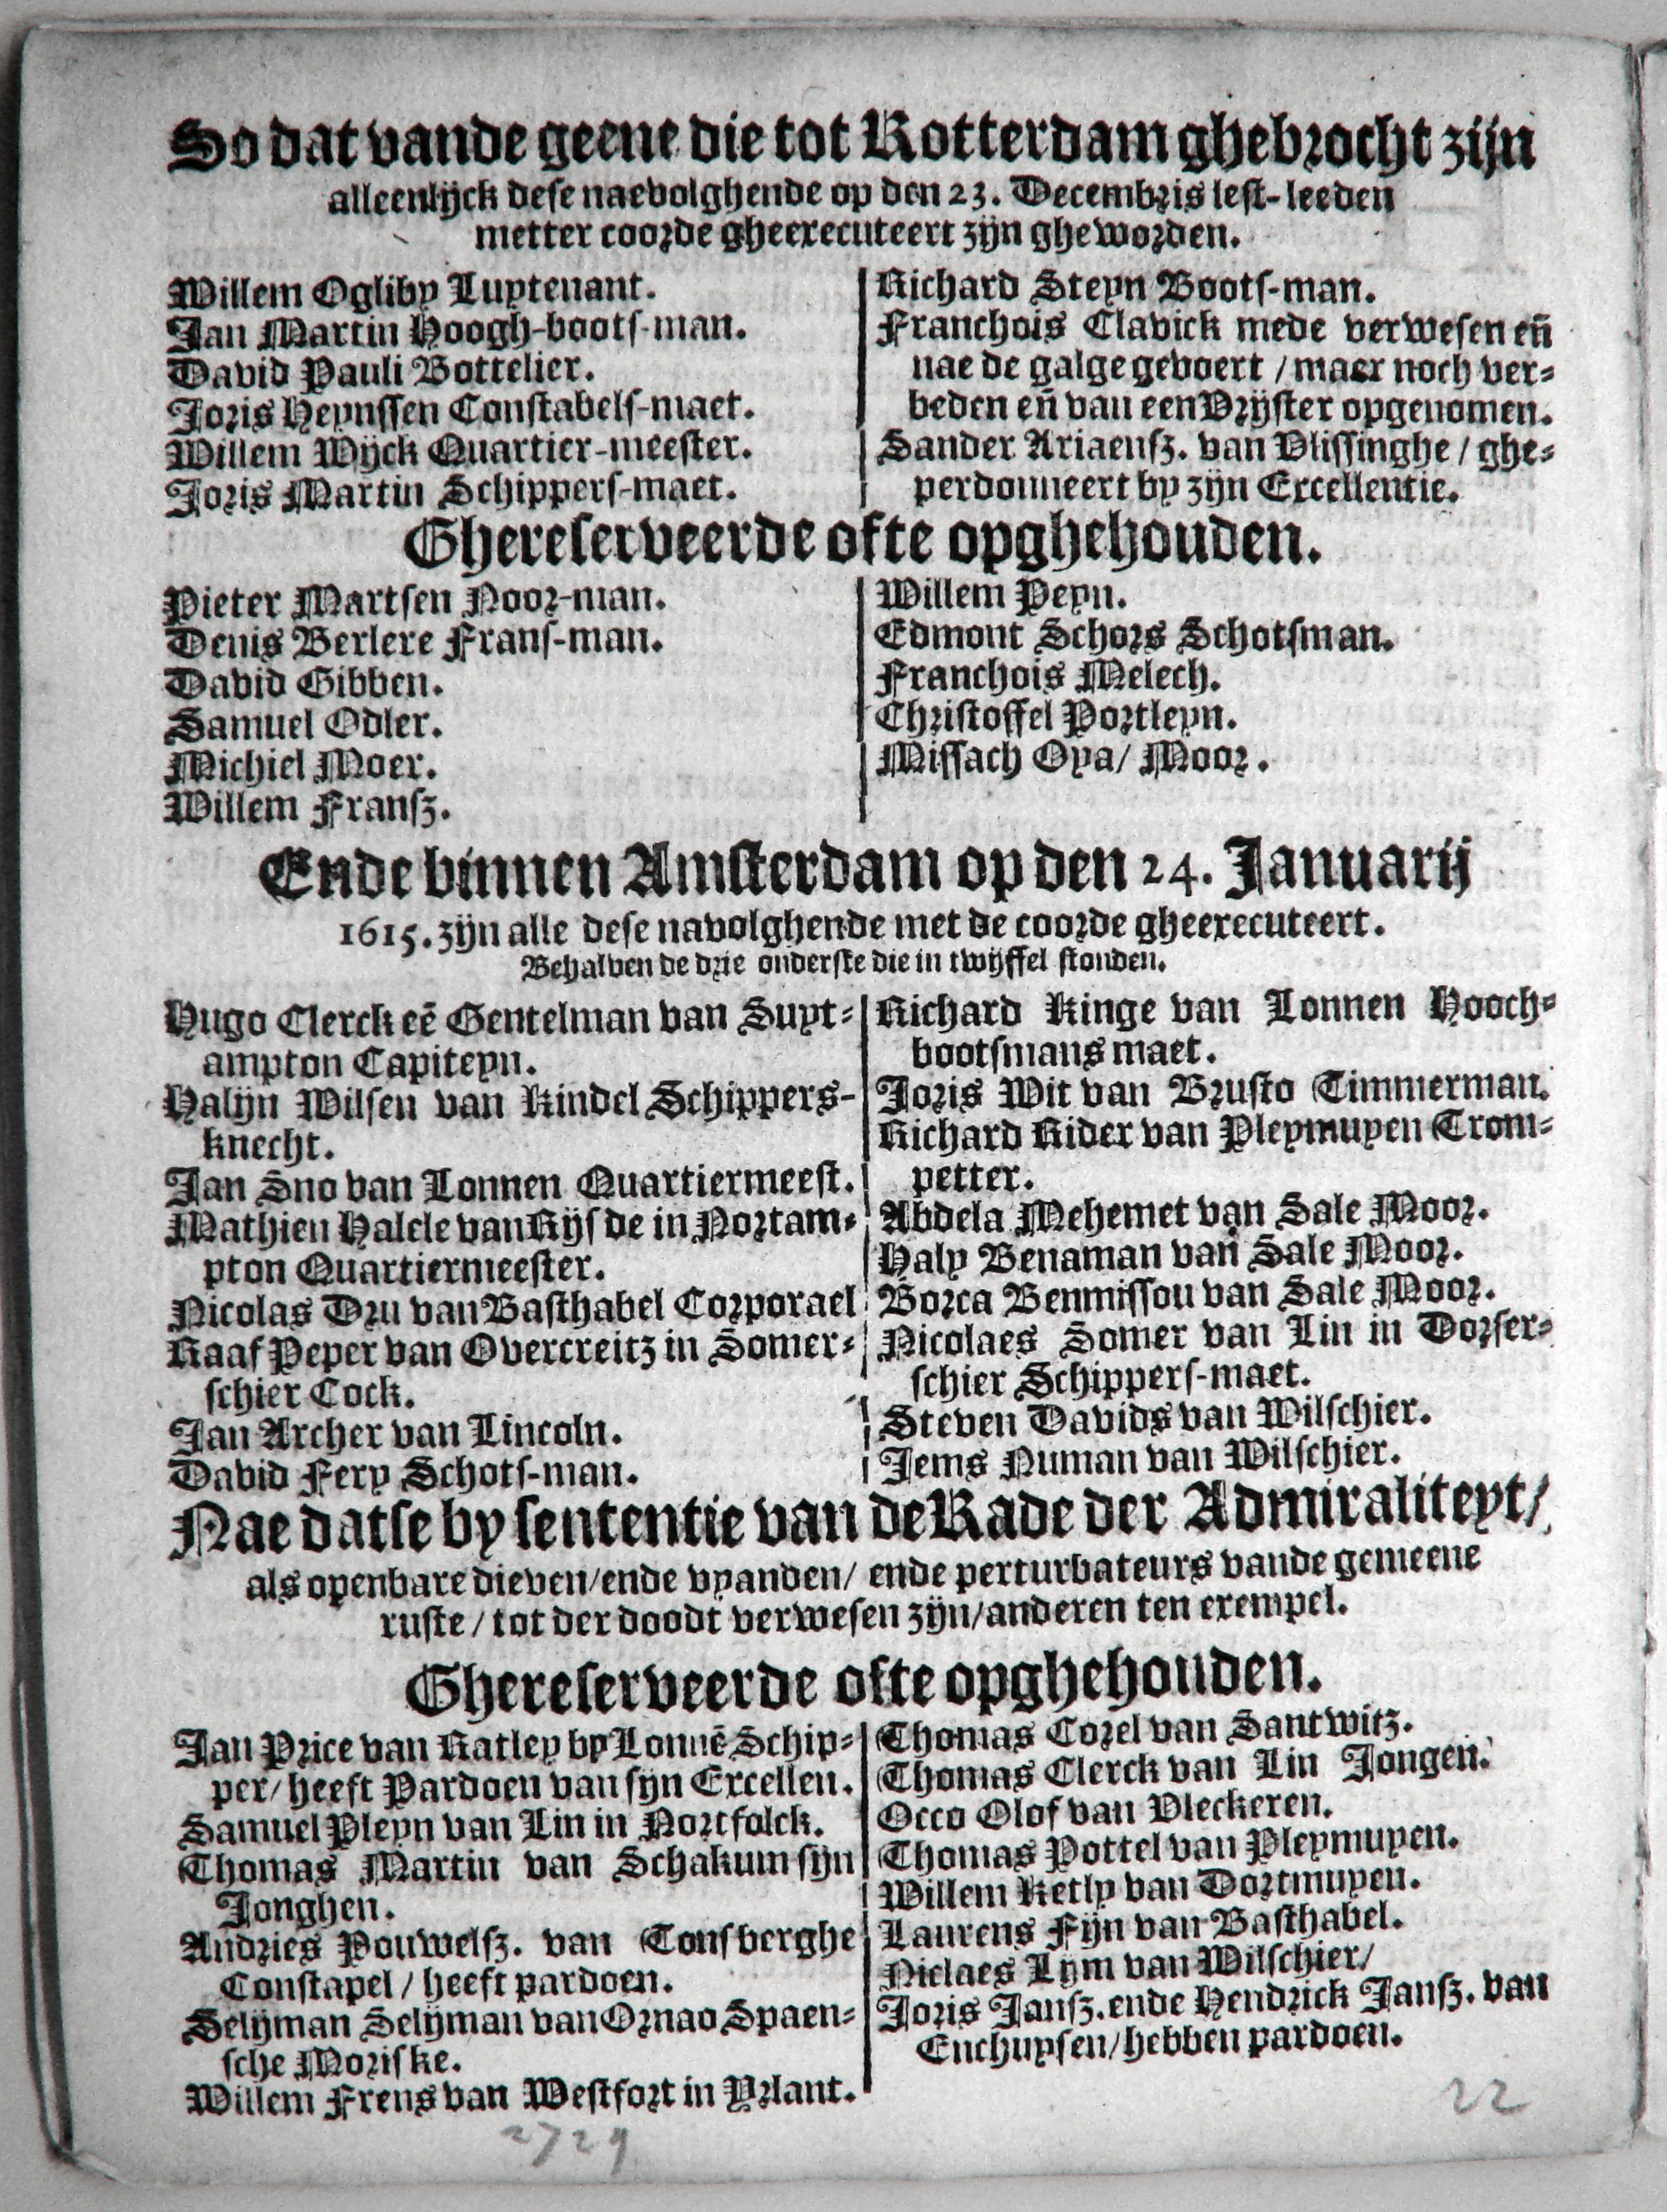 So dat vande geene die tot Rotterdam ghebrocht zijn
alleenlijck dese naevolghende op den 23. Decembris lest-leeden
metter coorde gheexecuteert zijn gheworden.
Willem Ogliby Luytenant.
Jan Martin Hoogh-boots-man.
David Pauli Bottelier.
Joris Heynssen Constabels-maet.
Willem Wijck Quartier-meester.
Joris Martin Schippers-maet.
Richard Steyn Boots-man.
Franchois Clavick mede verwesen eñ
nae de galge gevoert / maer noch ver-
beden eñ van een Vrijster opgenomen.
Sander Ariaensz. van Vlissinghe / ghe-
perdonneert by zijn Excellentie.
Ghereserveerde ofte opghehouden.
Pieter Martsen Noor-man.
Denis Berlere Frans-man.
David Gibben.
Samuel Odler.
Michiel Moer.
Willem Fransz.
Willem Peyn.
Edmont Schors Schotsman.
Franchois Melech.
Christoffel Portleyn.
Missach Oya / Moor.
Ende binnen Amsterdam op den 24. Januarij
1615. zijn alle dese navolghende met de coorde gheexecuteert.
Behalven de drie onderste die in twijffel stonden.
Hugo Clerck eē Gentelman van Suyt-
ampton Capiteyn.
Halijn Wilsen van Kindel Schippers-
knecht.
Jan Sno van Lonnen Quartiermeest.
Mathieu Halcle van Rijsde in Nortam-
pton Quartiermeester.
Nicolas Dru van Basthabel Corporael
Raaf Peper van Overcreitz in Somer-
schier Cock.
Jan Archer van Lincoln.
David Fery Schots-man.
Richard Kinge van Lonnen Hooch-
bootsmans maet.
Joris Wit van Brusto Timmerman.
Richard Rider van Pleymuyen Trom-
petter.
Abdela Mehemet van Sale Moor.
Haly Benaman van Sale Moor.
Borca Benmissou van Sale Moor.
Nicolaes Somer van Lin in Dorser-
schier Schippers-maet.
Steven Davids van Wilschier.
Jems Numan van Wilschier.
Nae datse by sententie van de Rade der Admiraliteyt /
als openbare dieven / ende vyanden / ende perturbateurs vande gemeene
ruste / tot der doodt verwesen zijn / anderen ten exempel.
Ghereserveerde ofte opghehouden.
Jan Price van Ratley by Lonnē Schip-
per / heeft Pardoen van sijn Excellen.
Samuel Pleyn van Lin in Nortfolck.
Thomas Martin van Schakum sijn
Jonghen.
Andries Pouwelsz. van Tonsberghe
Constapel / heeft pardoen.
Selijman Selijman van Ornao Spaen-
sche Moriske.
Willem Frens van Westfort in Yrlant.
Thomas Corel van Santwitz.
Thomas Clerck van Lin Jongen.
Occo Olof van Vleckeren.
Thomas Pottel van Pleymuyen.
Willem Ketly van Dortmuyen.
Laurens Fijn van Basthabel.
Niclaes Lym van Wilschier /
Joris Jansz. ende Hendrick Jansz. van
Enchuysen / hebben pardoen.
22
2729